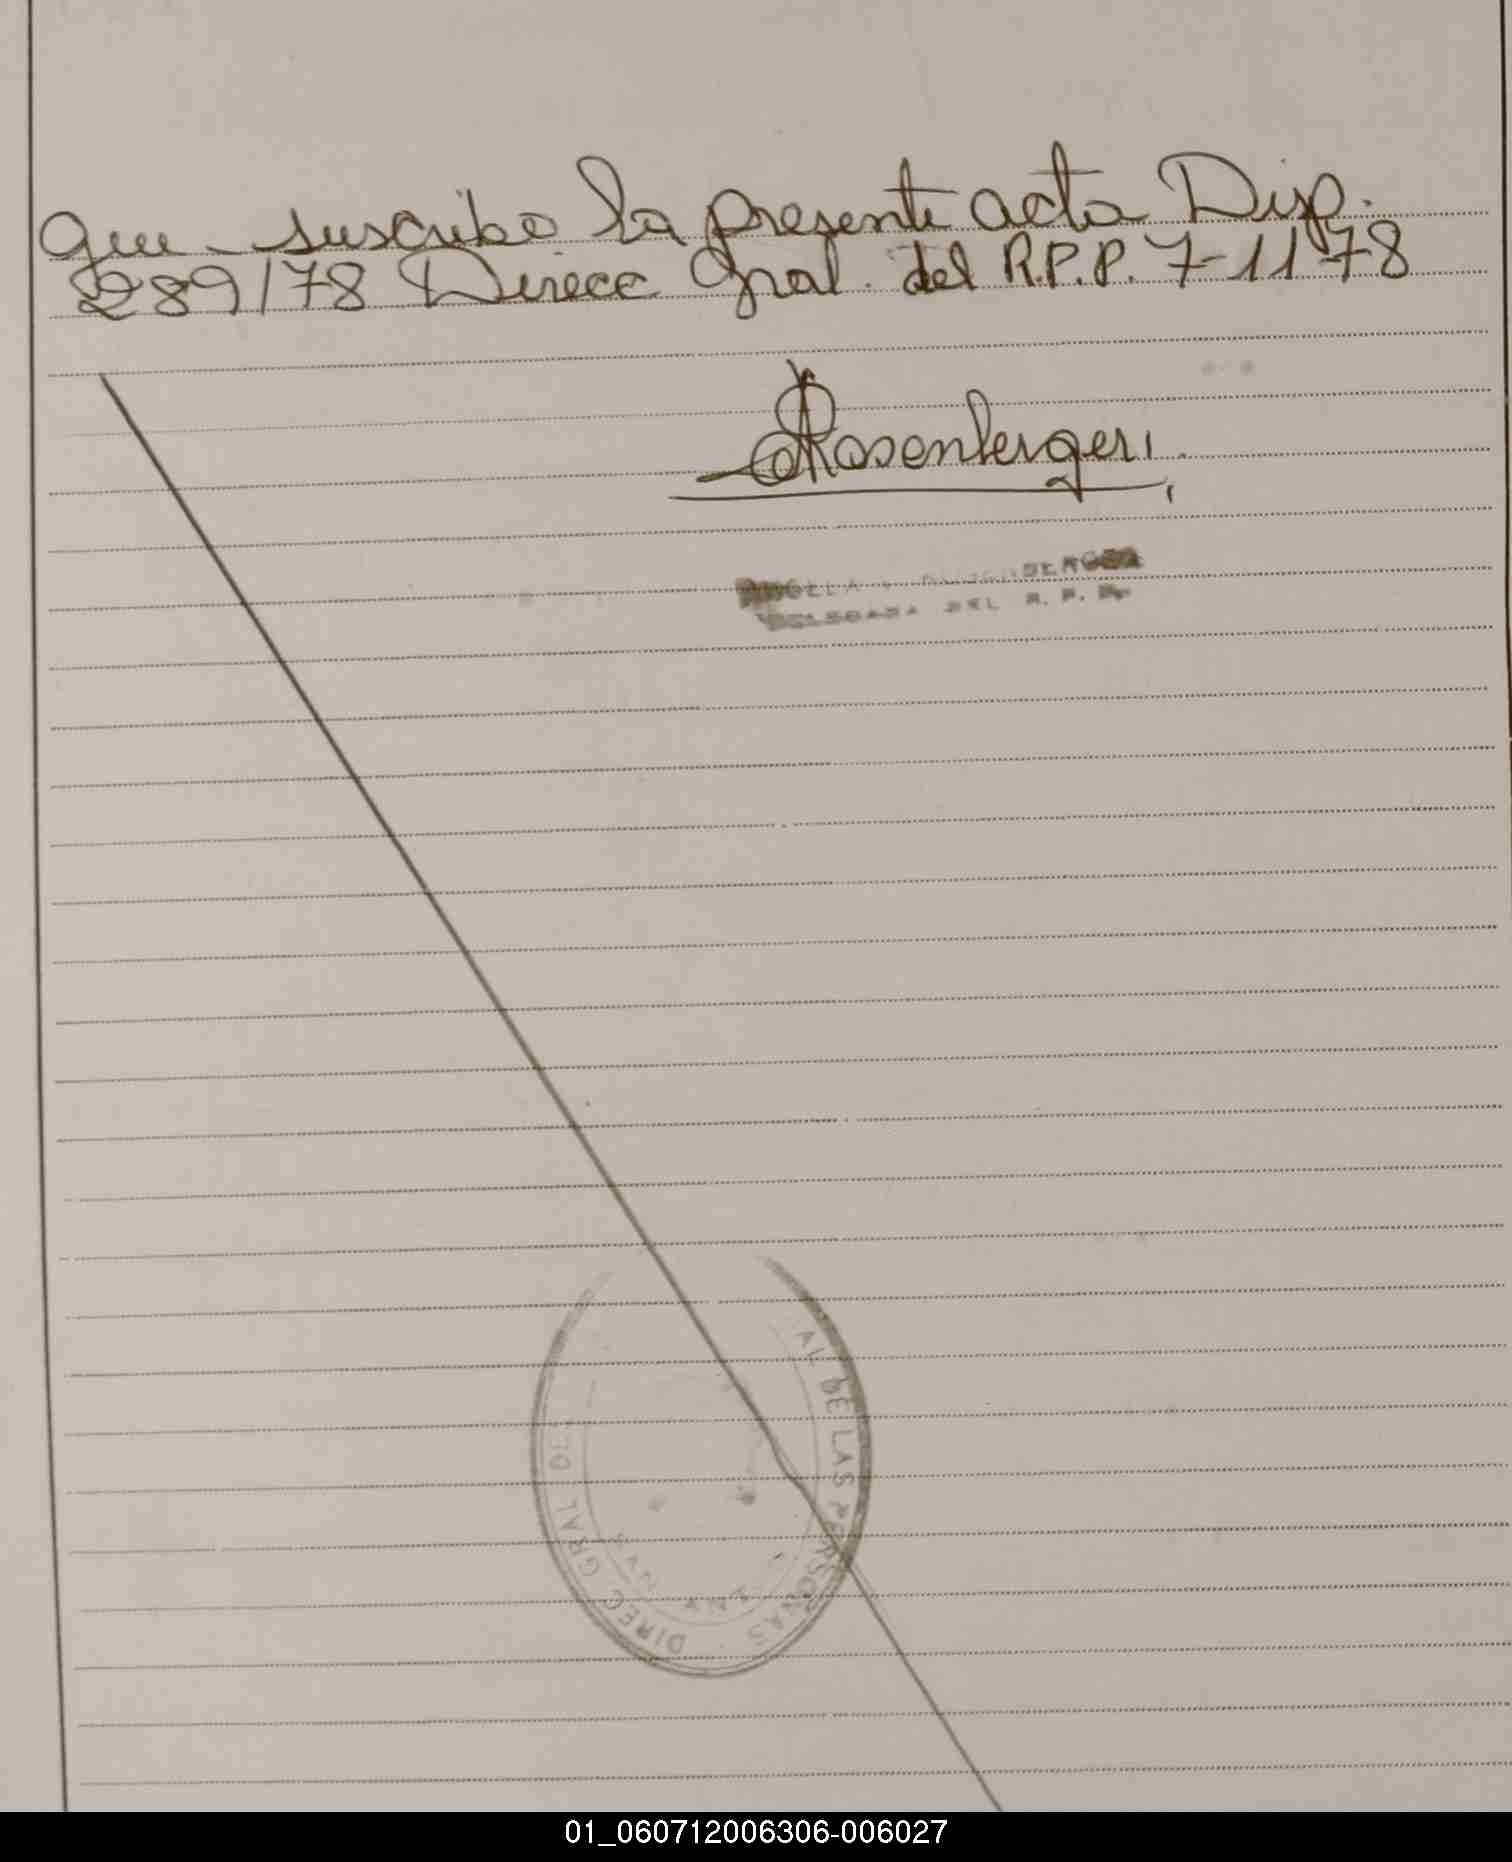 que suscribe la presente acta Disp.
289/78 Direcc Gral. del R.P.P. 7-11-78
Rosenberger
DEL R. P. P.
DIREC GRAL DE LAS PERSONAS
01_060712006306-006027